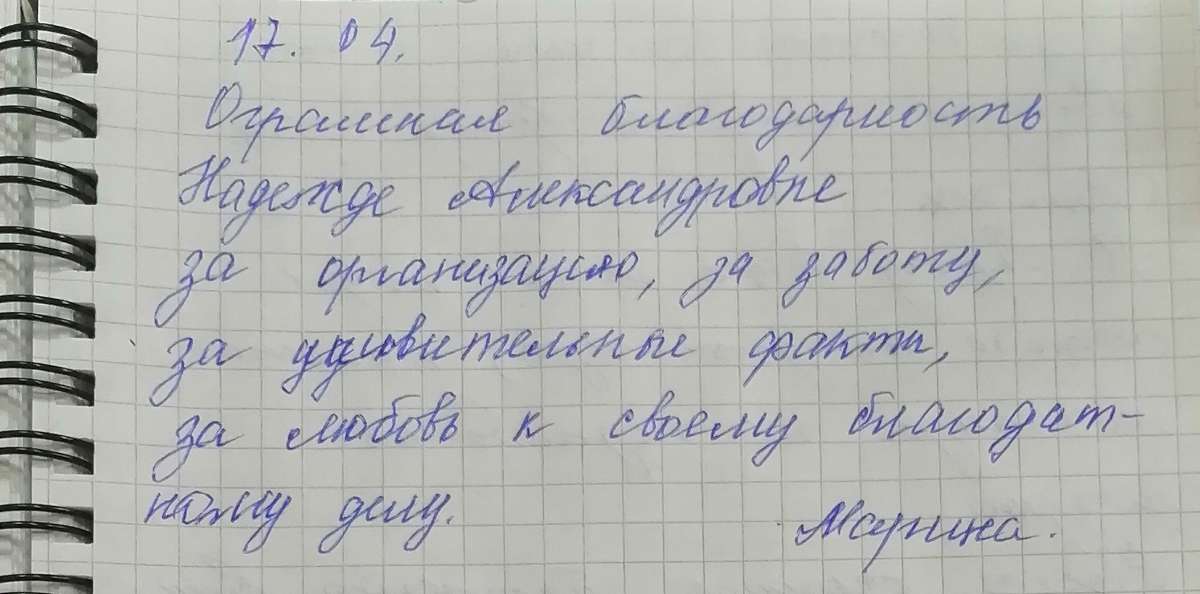 17. 04.
Огромная благодарность
Надежде Александровне
за организацию, за заботу,
за удивительные факты,
за любовь к своему благодат-
ному делу.
Марина.